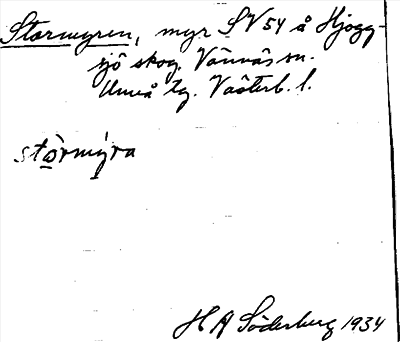 Stormyren, myr SV54 å Hjogg-
sjö skog. Vännäs sn.
Umeå tg. Västerb. l.
stòrmýra
H A Söderberg 1934